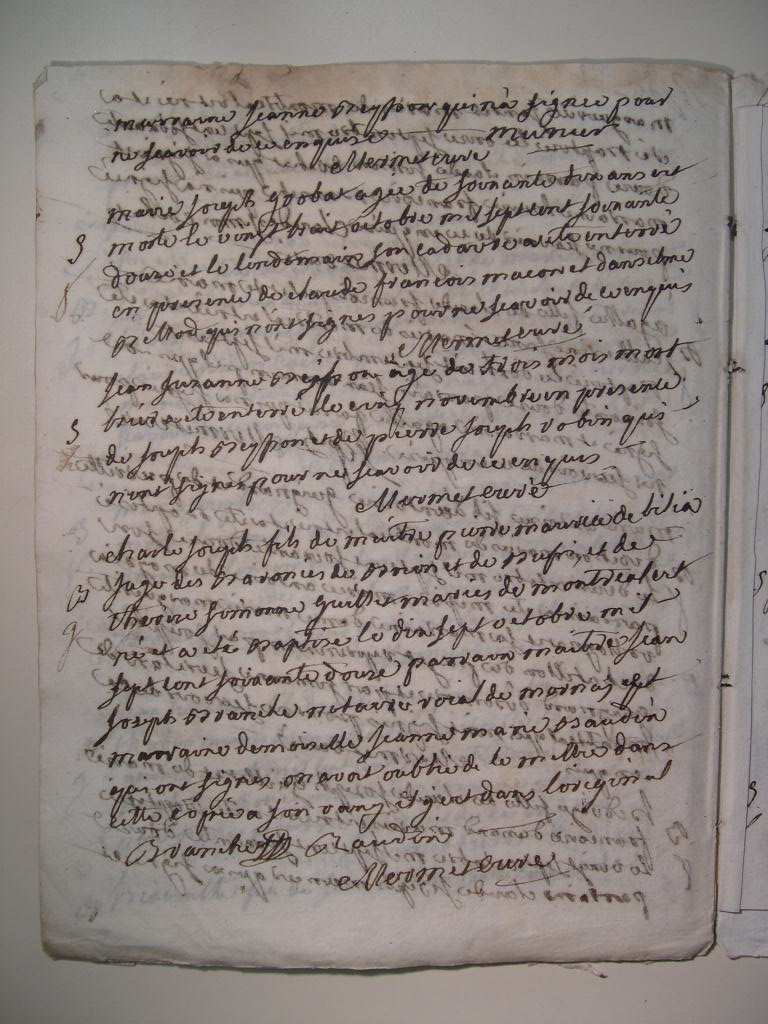 marraine jeanne Breysson qui n'a signée pour
ne scavoir de ce enquise munier
Mermet curé
marie joseph gobat agée de soixante dix ans est
morte le vingt trois octobre mil sept cent soixante
douze et le lendemain son cadavre a été enterré
en presence de claude francois macon et danselme
qui n'ont signés pour ne scavoir de ce enquis
Mermet curé
jean suzanne Breysson agé de trois mois mort
hier a été enterré le cinq novembre en presence
de joseph Breysson et de pierre joseph robin qui
n'ont signés pour ne scavoir de ce enquis
Mermet curé
charle joseph fils de maître pierre maurice de bilia
juge des Baronies de et de Buffin et de
therese simonne guillet mariés de montrealert
né et a été Baptisé le dix sept octobre mil
sept cent soixante douze parrain maître jean
joseph Branche notaire roial de mornas est
marraine demoiselle jeanne marie Baudin
qui ont signés on avoit oublié de le mettre dans
cette copie a son rang et y est dans loriginal
Branche Baudin
Mermet curé
S
S
B
g